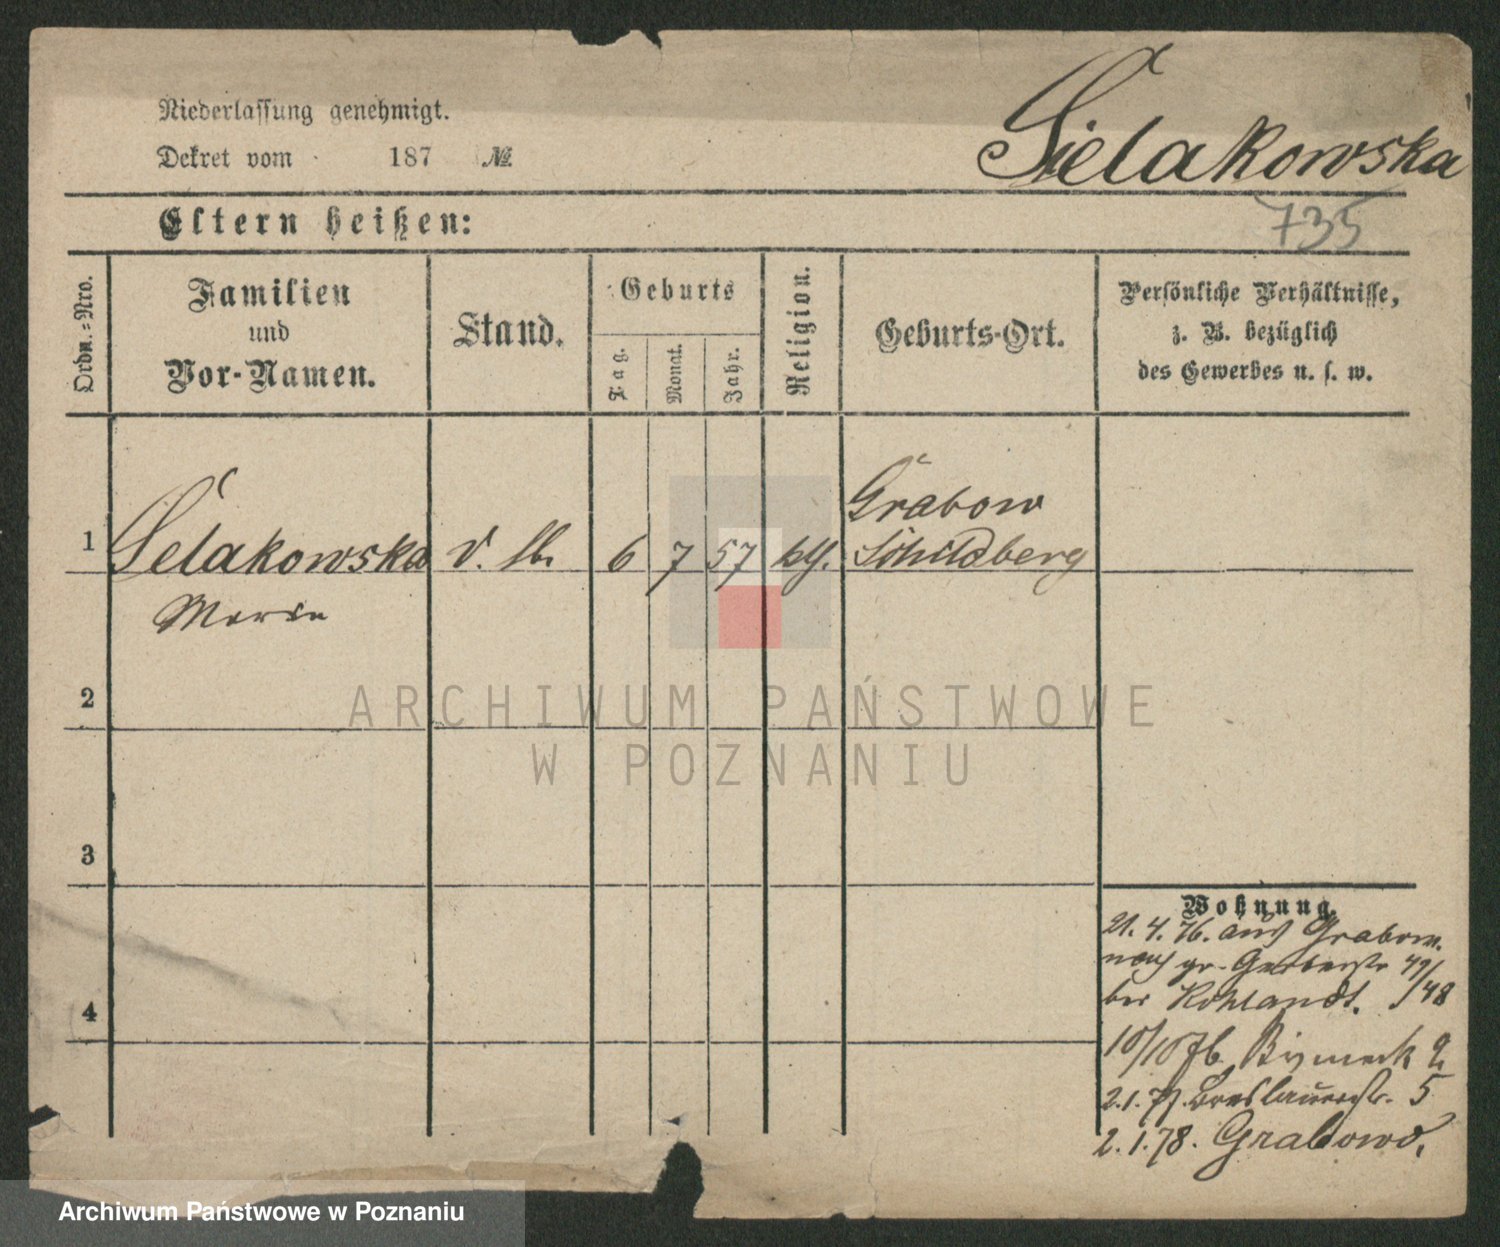 Niederlassung genehmigt.
Dekret vom 187 №
Sielakowska
735
Eltern heißen:
Ordn.=Nro.
Familien
und
Vor-Namen.
Stand.
Geburts
Tag.
Monat.
Jahr.
Religion.
Geburts-Ort.
Persönliche Verhältnisse,
z. B. bezüglich
des Gewerbes u. s. w.
1
Selakowska
6 7 57 kth.
Grabow
Schildberg
2
3
4
Wohnung.
21. 4. 76. aus Grabow.
nach gr. Gerberstr 49/48
bei
10/10 76. Bismark 2
2. 1. 77. Breslauerstr. 5
2. 1. 78. Grabowo.
ARCHIWUM PAŃSTWOWE
W POZNANIU
Archiwum Państwowe w Poznaniu